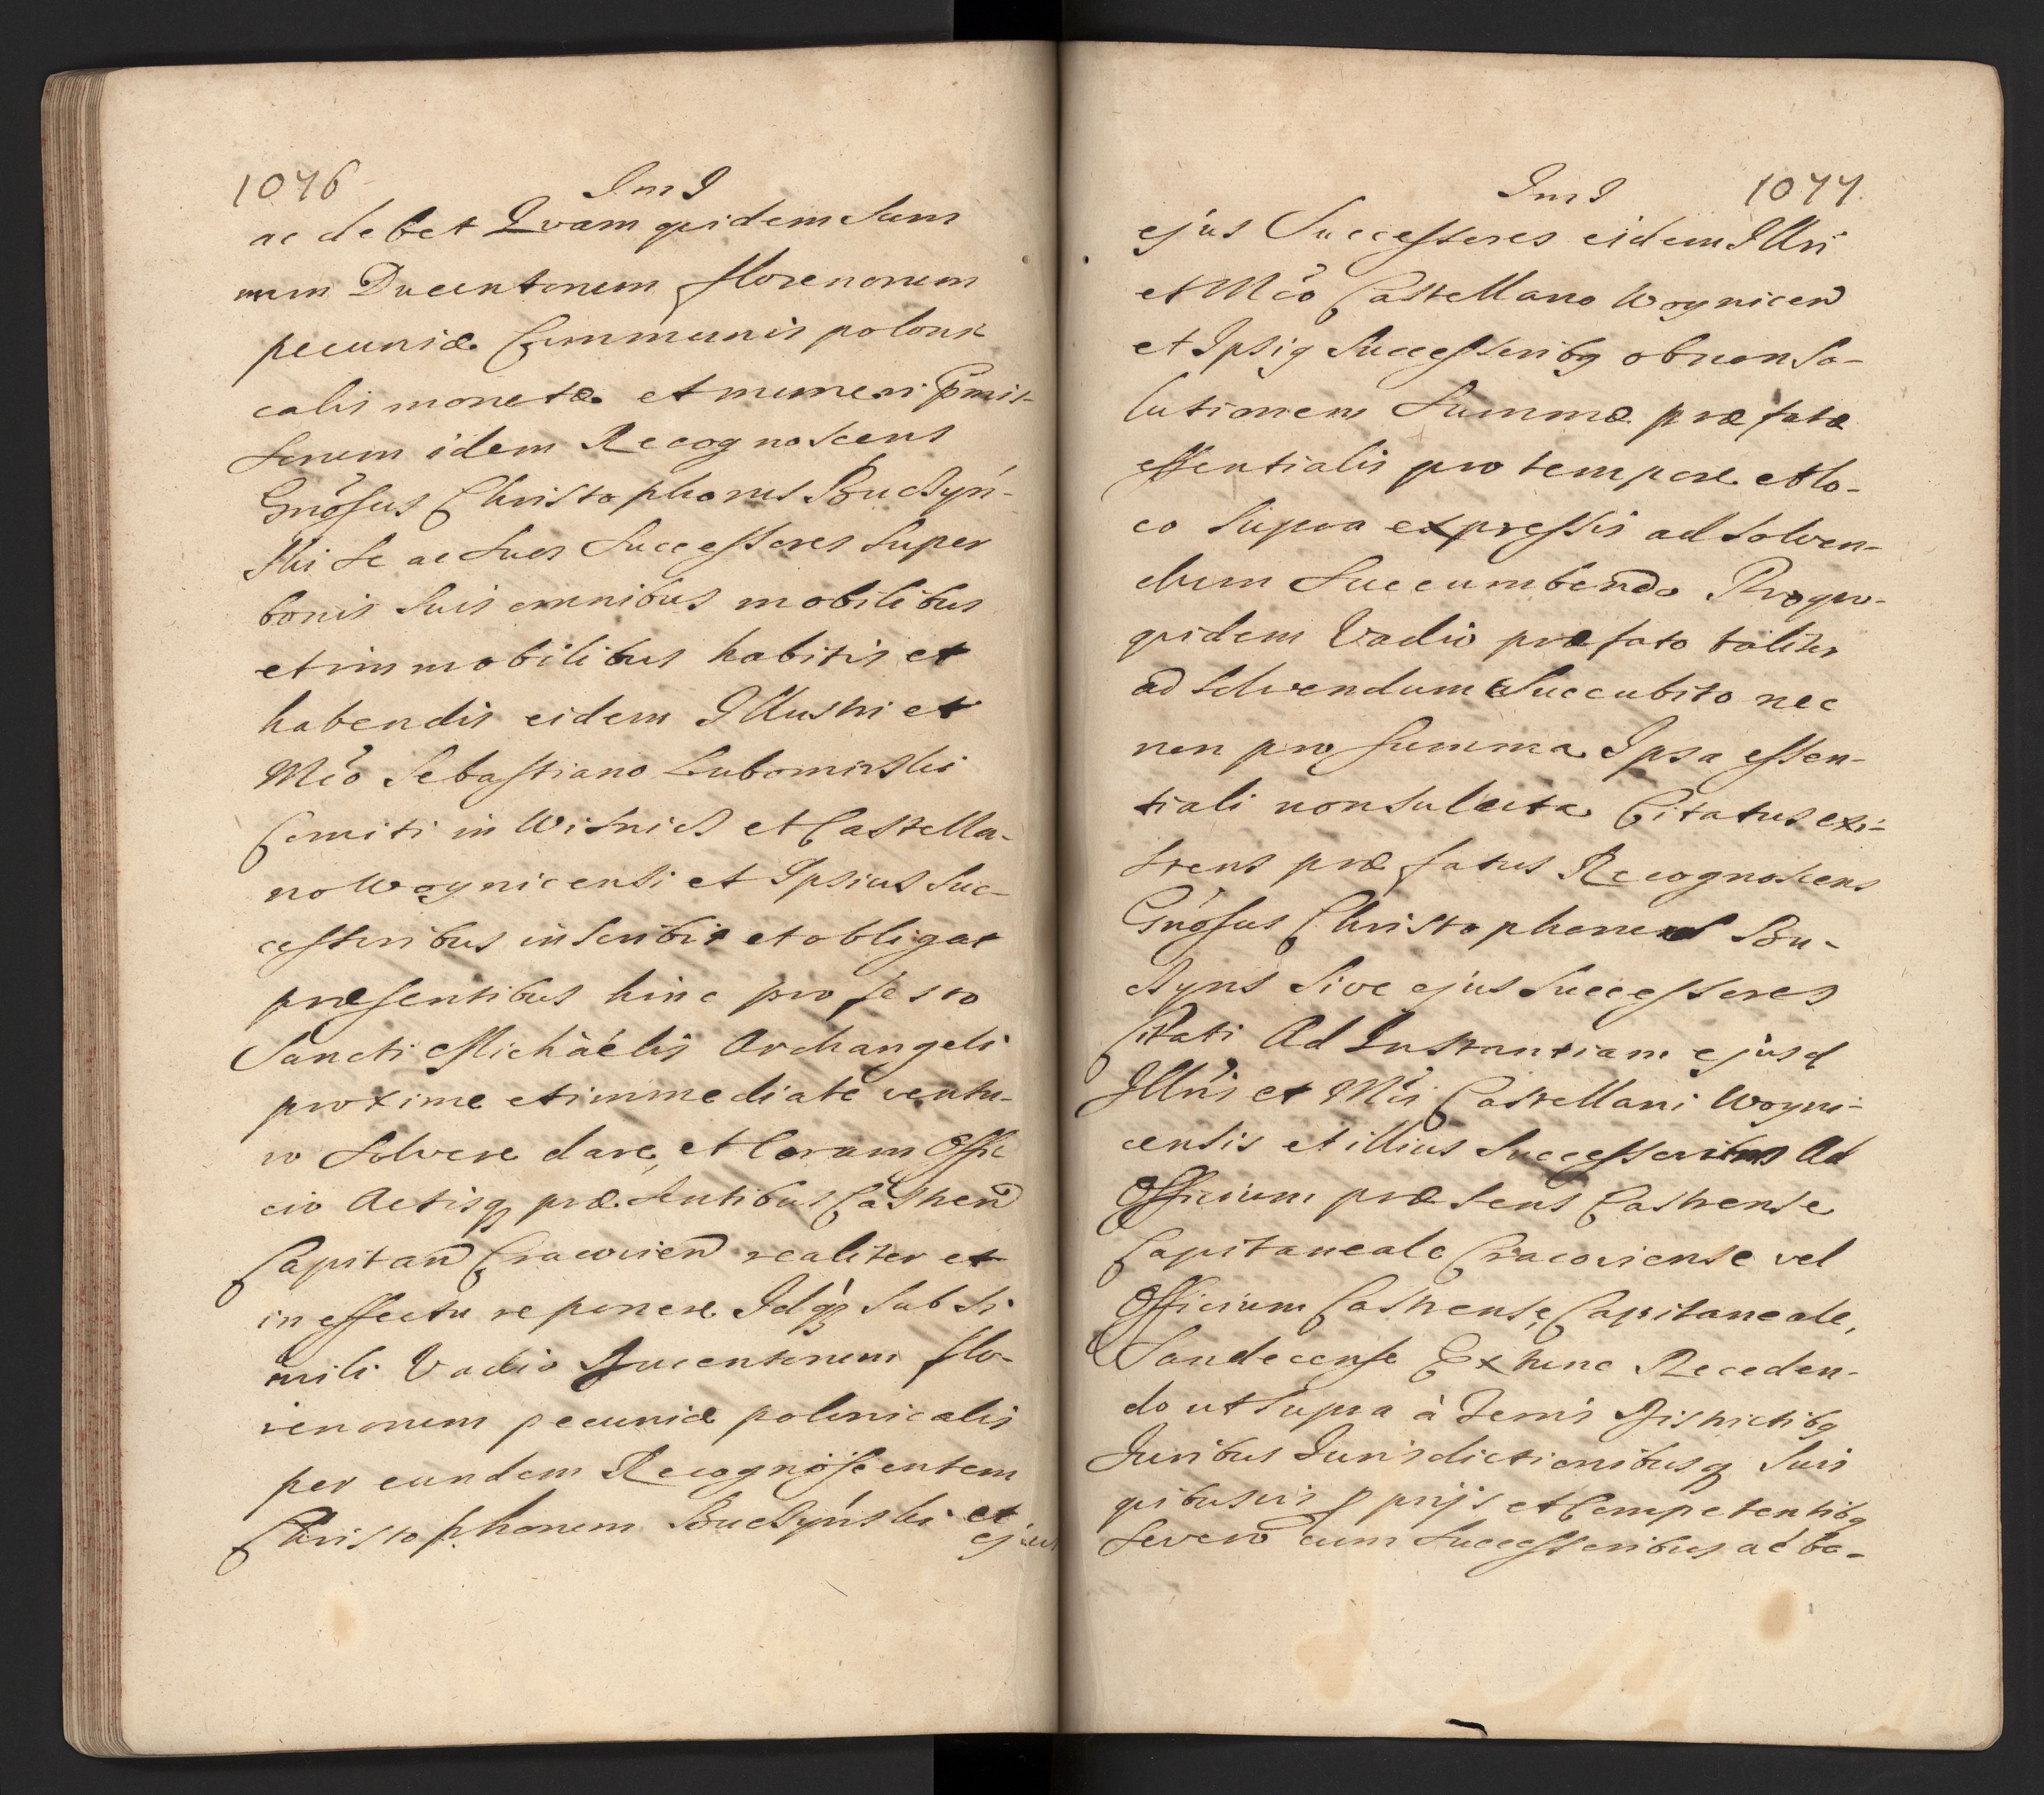 1076
Im I
ac debet Quam quidem Sum
mam Ducentorum florenorum
pecuniæ Communis poloni
calis monetæ et numeri pmis-
sorum idem Recognoscens
Gnosus Christophorus
se ac suos Successores super
bonis suis omnibus mobilibus
et immobilibus habitis et
habendis eidem Illustri et
Mco Sebastiano Lubomirski
Comiti in Wisnicz et Castella-
no Woynicensi et Ipsius Suc-
cessoribus inscribit et obligat
præsentibus hinc pro festo
Sancti Michäelis Archangeli
proxime et immediate ventu-
ro Solvere dare, et Coram Offi
cio Actisq præsentibus Castren
Capitan Cracovien realiter et
in effectu reponere Idq sub si
mili Vadio Ducentorum flo-
renorum pecuniæ polonicalis
per eundem Recognoscentem
Christophorum et
ejus
Im I
1077.
ejus Successores eidem Illri
et Mco Castellano Woynicen
et Ipsiq Successoribq ob non so-
lutionem Summæ præfatæ
essentialis pro tempore et lo-
co supra expressis ad solven-
dum succumbendo Pro quo-
quidem Vadio præfato taliter
ad solvendum Succubito nec
non pro summa Ipsa essen-
tiali non soluta Citatus exi-
stens præfatus Recognoscens
Gnosus Christophorus
sive ejus Successores
Citati Ad Instantiam ejusd
Illris et Mci Castellani Woyni-
censis et illius Successoribus Ad
Officium præsens Castrense
Capitaneale Cracoviense vel
Officium Castrense, Capitaneale,
Sandecense Extunc Receden-
do ut supra à Terris Districtibq
Juribus Jurisdictionibusq suis
quibusvis pprijs et Competentibq
se vero cum Successoribus ac bo-